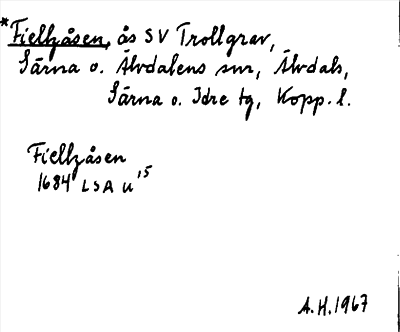 *Fiellzåsen, ås SV Trollgrav,
Särna o. Älvdalens snr, Älvdals,
Särna o. Idre tg, Kopp. l.
Fiellzåsen
1684 LSA U 15
A.H. 1967